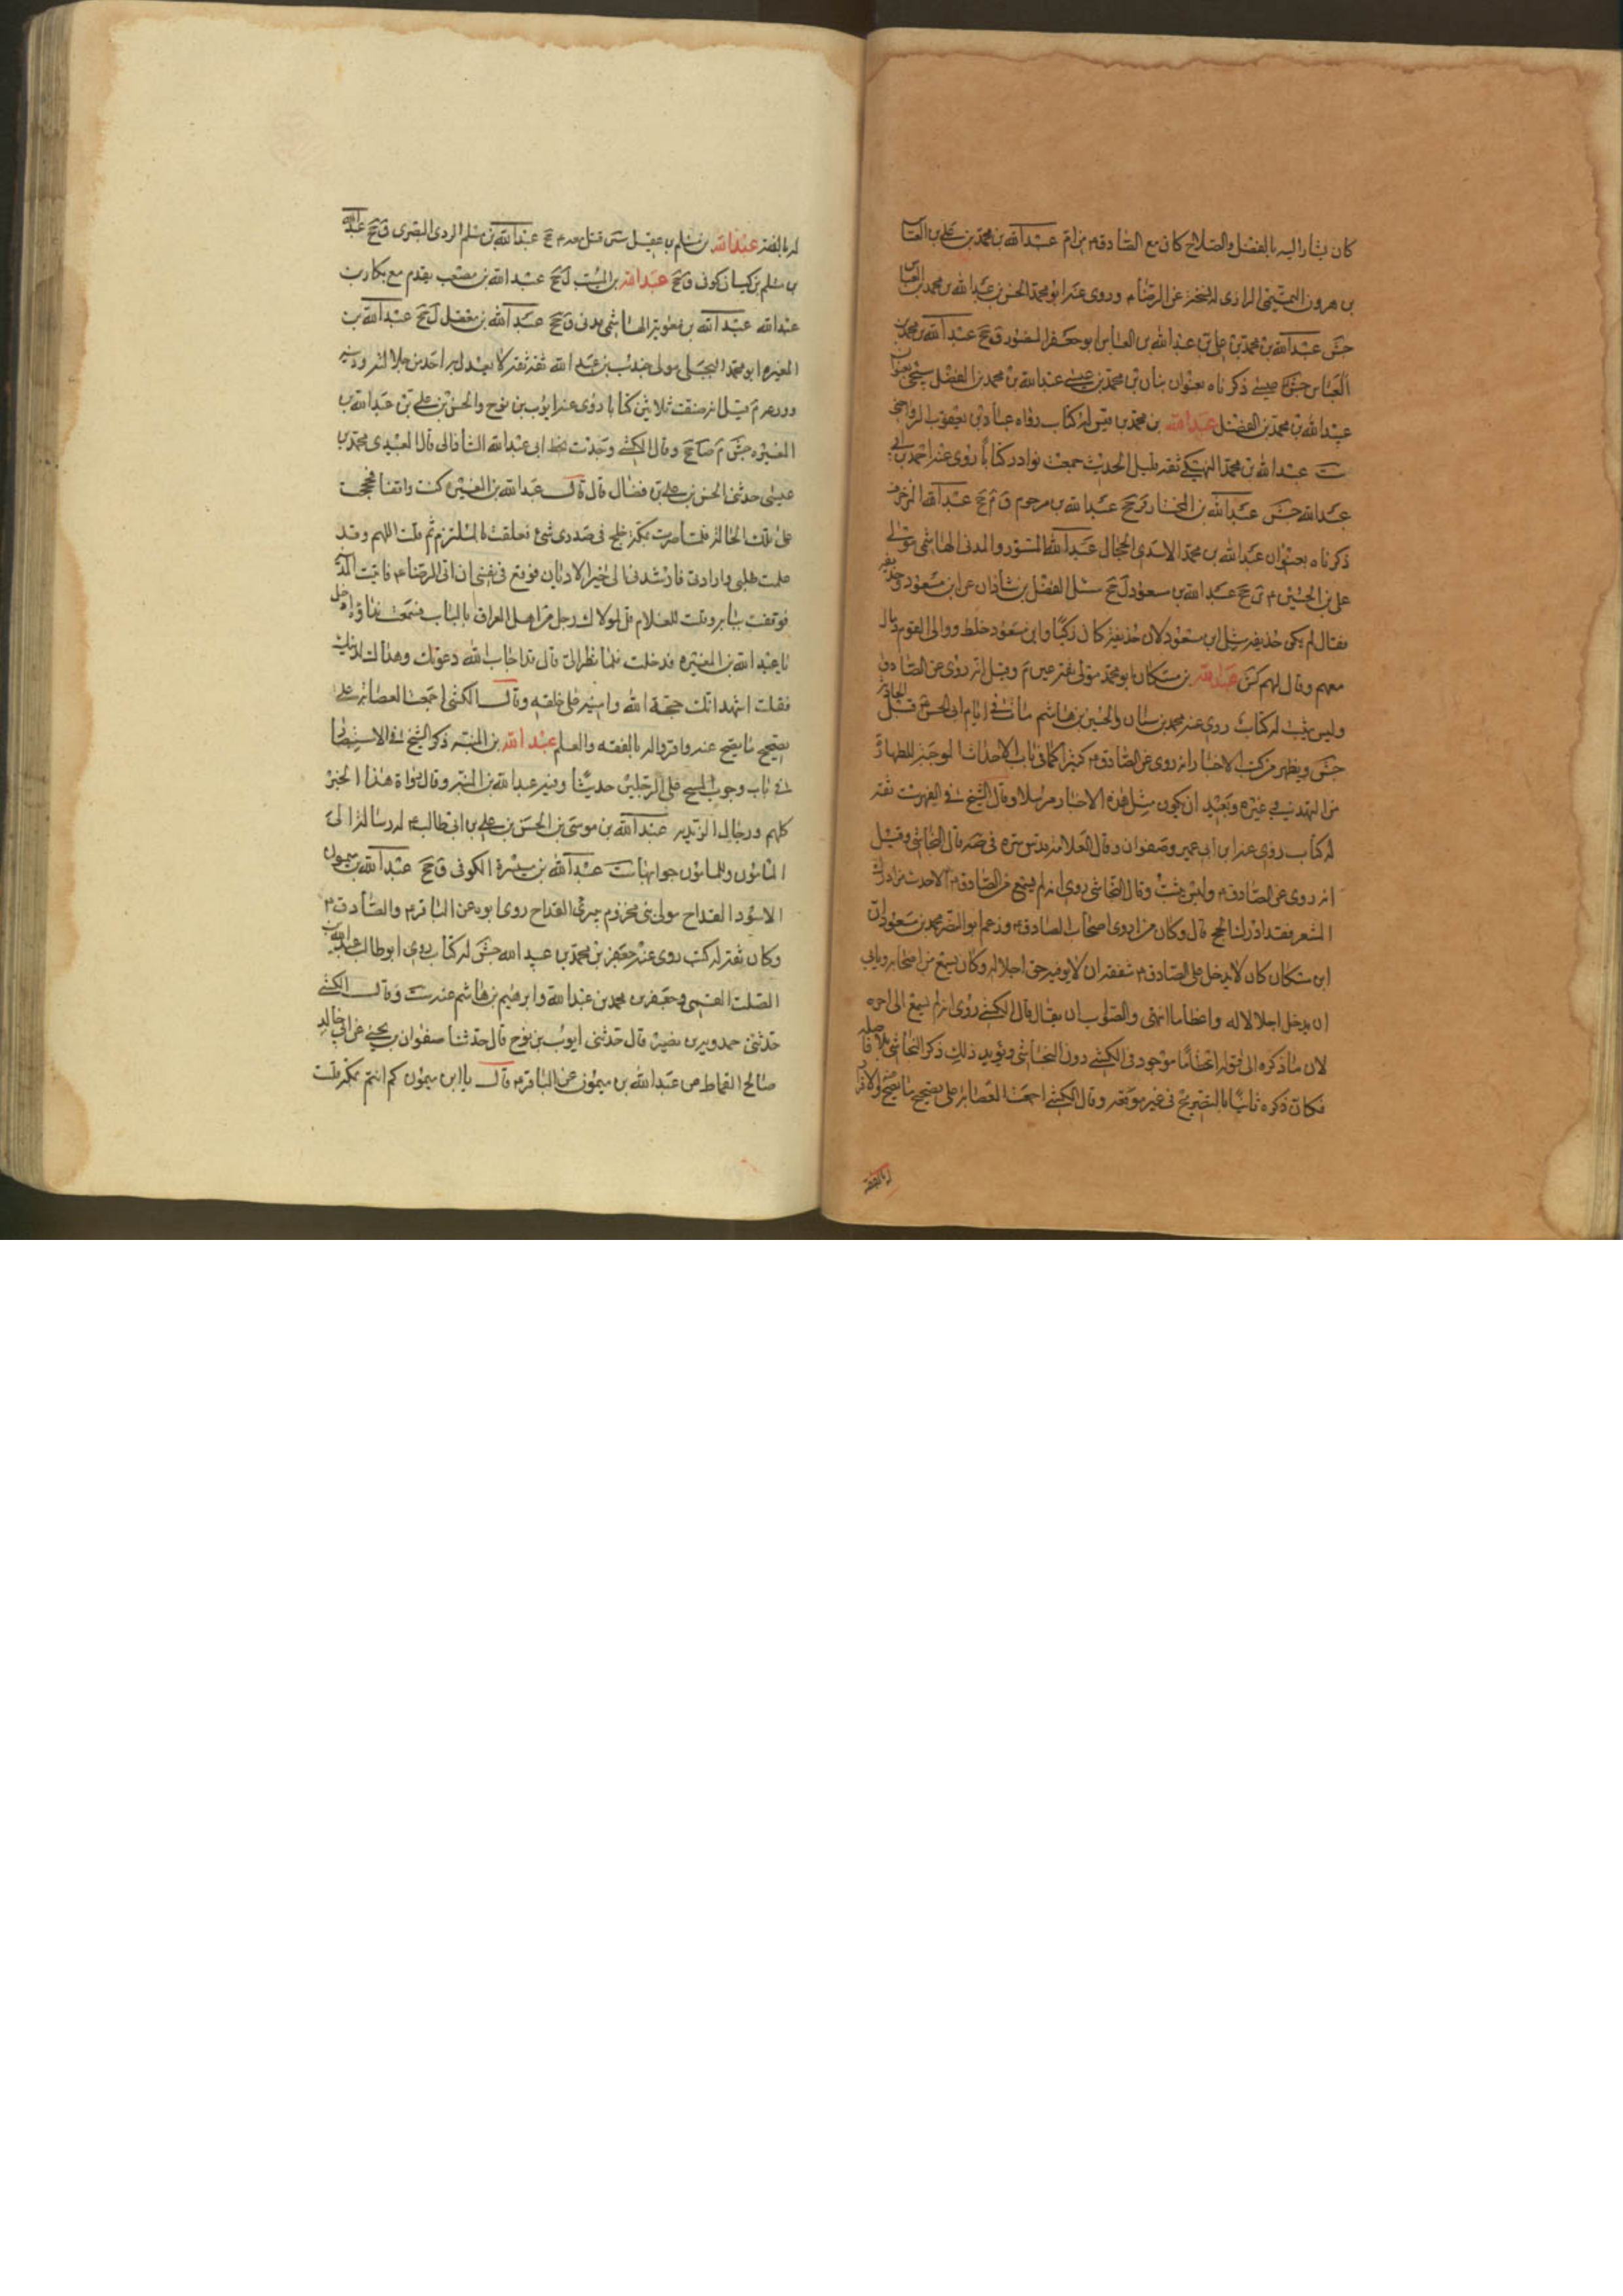 كان يشار اليه بالفضل والصلاح كان مع الصادق م عبد الله بن محمد بن علي بن العباس
بن هرون التميمي الرازي له نسخة عن الرضا م وروى عنه ابو محمد الحسن بن عبد الله بن محمد بن العباس
جش عبد الله بن محمد بن علي بن عبد الله بن العباس ابو جعفر المنصور ق جخ عبد الله بن محمد بن
العباس جش ذكرناه بعنوان بنان بن محمد بن عيسى عبد الله بن محمد بن الفضل سيجئ بعنوان
عبد الله بن محمد بن الفضل عبد الله بن محمد بن قيس له كتاب رواه عباد بن يعقوب الرواجني
ست عبد الله بن محمد النهيكي ثقة قليل الحديث جمعت نوادر كتابا روى عنه احمد بن ابي
عبد الله جش عبد الله بن المختار ق جخ عبد الله بن مرحوم ق م جخ عبد الله المزخرف
ذكرناه بعنوان عبد الله بن محمد الاسدي الحجال عبد الله المستورد المدني الهاشمي مولى
علي بن الحسين م ين جخ عبد الله بن مسعود ل جخ سئل الفضل بن شاذان عن ابن مسعود وحذيفة
فقال لم يكن حذيفة مثل ابن مسعود لان حذيفة كان ركنا وابن مسعود خلط ووالى القوم ومال
معهم وقال بهم كش عبد الله بن مسكان ابو محمد مولى عنزة عين م وقيل انه روى عن الصادق
وليس بثبت له كتاب روى عنه محمد بن سنان والحسين بن هاشم مات في ايام ابي الحسن م قبل الحادثة
جش ويظهر من كتب الاخبار انه روى عن الصادق م كثيرا كما في باب الاحداث الموجبة للطهارة
من التهذيب وفي غيره وبعيد ان يكون مثل هذه الاخبار مرسلا وقال الشيخ في الفهرست ثقة
له كتاب روى عنه ابن ابي عمير وصفوان وقال العلامة قدس سره في صه قال النجاشي وقيل
انه روى عن الصادق م وليس بثبت وقال النجاشي روى انه لم يسمع من الصادق م الا حديث من ادرك
المشعر فقد ادرك الحج قال وكان من اروى اصحاب الصادق م وزعم ابو النضر محمد بن مسعود ان
ابن مسكان كان لا يدخل على الصادق م شفقة ان لا يوفيه حق اجلاله وكان يسمع من اصحابه ويابى
ان يدخل اجلالا له واعظاما انتهى والصواب ان يقال قال الكشي روى انه لم يسمع الى اخره
لان ما ذكره الى قوله اعظاما موجود في الكشي دون النجاشي ويؤيد ذلك ذكر النجاشي بلا فاصلة
فكان ذكره ثانيا بالتصريح في غير موقعه وقال الكشي اجمعت العصابة على تصحيح ما يصح له والاقرار
له بالفقه
له بالفقه عبد الله بن مسلم بن عقيل سين قتل معه م جخ عبد الله بن مسلم البصري ق جخ عبد الله
بن مسلم بن كيسان كوفي ق جخ عبد الله بن المسيب ل جخ عبد الله بن مصعب يقدم مع بكار بن
عبد الله عبد الله بن معوية الهاشمي مدني ق جخ عبد الله بن مغفل ل جخ عبد الله بن
المغيرة ابو محمد البجلي مولى جندب بن عبد الله ثقة ثقة لا يعدل به احد من جلالته ودينه
وورعه م قيل انه صنف ثلاثين كتابا روى عنه ايوب بن نوح والحسن بن علي بن عبد الله بن
المغيرة جش م ضا جخ وقال الكشي وجدت بخط ابي عبد الله الشاذاني قال العبيدي محمد بن
عيسى حدثني الحسن بن علي بن فضال قال قال عبد الله بن المغيرة كنت واقفا فحججت
على تلك الحالة فلما صرت بمكة خلج في صدري شئ فتعلقت بالملتزم ثم قلت اللهم وقد
علمت طلبتي وارادتي فارشدني الى خير الاديان فوقع في نفسي ان اتى الرضا م فاتيت المدينة
فوقفت ببابه وقلت للغلام قل لمولاك رجل من اهل العراق بالباب فسمعت نداؤه ادخل
يا عبد الله بن المغيرة فدخلت فلما نظر الي قال قد اجاب الله دعوتك وهداك لدينك
فقلت اشهد انك حجة الله وامينه على خلقه وقال الكشي اجمعت العصابة على
تصحيح ما يصح عنه واقروا له بالفقه والعلم عبد الله بن المنبه ذكر الشيخ في الاستبصار
في باب وجوب المسح على الرجلين حديثا وفيه عبد الله بن المنبه وقال رواة هذا الخبر
كلهم ورجال الزيديه عبد الله بن موسى بن الحسن بن علي بن ابي طالب م له رسالة الى
المامون وللمامون جوابها ست عبد الله بن ميسرة الكوفي ق جخ عبد الله بن ميمون
الاسود القداح مولى بني مخزوم يبري القداح روى ابوه عن الباقر م والصادق م
وكان ثقة له كتب روى عنه جعفر بن محمد بن عبيد الله جش له كتاب روى ابو طالب عبد الله بن
الصلت القمي وجعفر بن محمد بن عبد الله وابرهيم بن هاشم عنه ست وقال الكشي
حدثني حمدويه بن نصير قال حدثني ايوب بن نوح قال حدثنا صفوان بن يحيى عن ابي خالد
صالح القماط عن عبد الله بن ميمون عن الباقر م قال يا ابن ميمون كم انتم بمكة قلت